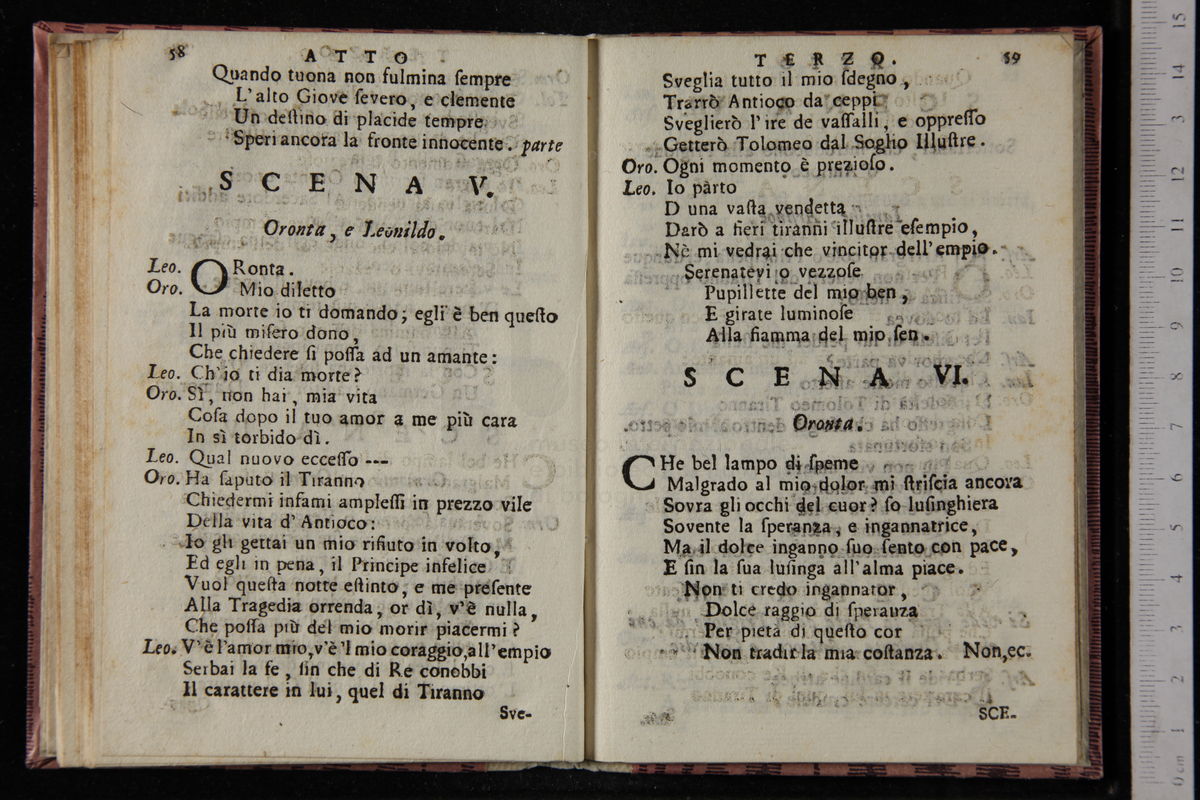 58 ATTO
Quando tuona non fulmina ſempre
L'alto Giove ſevero, e clemente
Un deſtino di placide tempre
Speri ancora la fronte innocente. parte
SCENA V.
Oronta, e Leonildo.
Leo. ORonta.
Oro. Mio diletto
La morte io ti domando; egli è ben queſto
Il più miſero dono,
Che chiedere ſi poſſa ad un amante:
Leo. Ch'io ti dia morte?
Oro. Sì, non hai, mia vita
Coſa dopo il tuo amor a me più cara
In sì torbido dì.
Leo. Qual nuovo ecceſſo ---
Oro. Ha ſaputo il Tiranno
Chiedermi infami ampleſſi in prezzo vile
Della vita d'Antioco:
Io gli gettai un mio rifiuto in volto,
Ed egli in pena, il Principe infelice
Vuol queſta notte eſtinto, e me preſente
Alla Tragedia orrenda, or dì, v'è nulla,
Che poſſa più del mio morir piacermi?
Leo. V'è l'amor mio, v'è 'l mio coraggio, all'empio
Serbai la fe, ſin che di Re conobbi
Il carattere in lui, quel di Tiranno
Sve-
TERZO. 59
Sveglia tutto il mio ſdegno,
Trarrò Antioco da ceppi
Sveglierò l'ire de vaſſalli, e oppreſſo
Getterò Tolomeo dal Soglio Illuſtre.
Oro. Ogni momento è prezioſo.
Leo. Io parto
D una vaſta vendetta
Darò a fieri tiranni illuſtre eſempio,
Nè mi vedrai che vincitor dell'empio.
Serenatevi o vezzoſe
Pupillette del mio ben,
E girate luminoſe
Alla fiamma del mio ſen.
SCENA VI.
Oronta.
CHe bel lampo di ſpeme
Malgrado al mio dolor mi ſtriſcia ancora
Sovra gli occhi del cuor? ſo luſinghiera
Sovente la ſperanza, e ingannatrice,
Ma il dolce inganno ſuo ſento con pace,
E ſin la ſua luſinga all'alma piace.
Non ti credo ingannator,
Dolce raggio di ſperanza
Per pietà di queſto cor
Non tradir la mia coſtanza. Non, ec.
SCE-